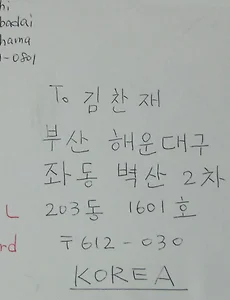 hi
badai
hama
1-0801
To 김찬재
부산 해운대구
좌동 벽산 2차
L 203동 1601호
rd 〒612-030
KOREA